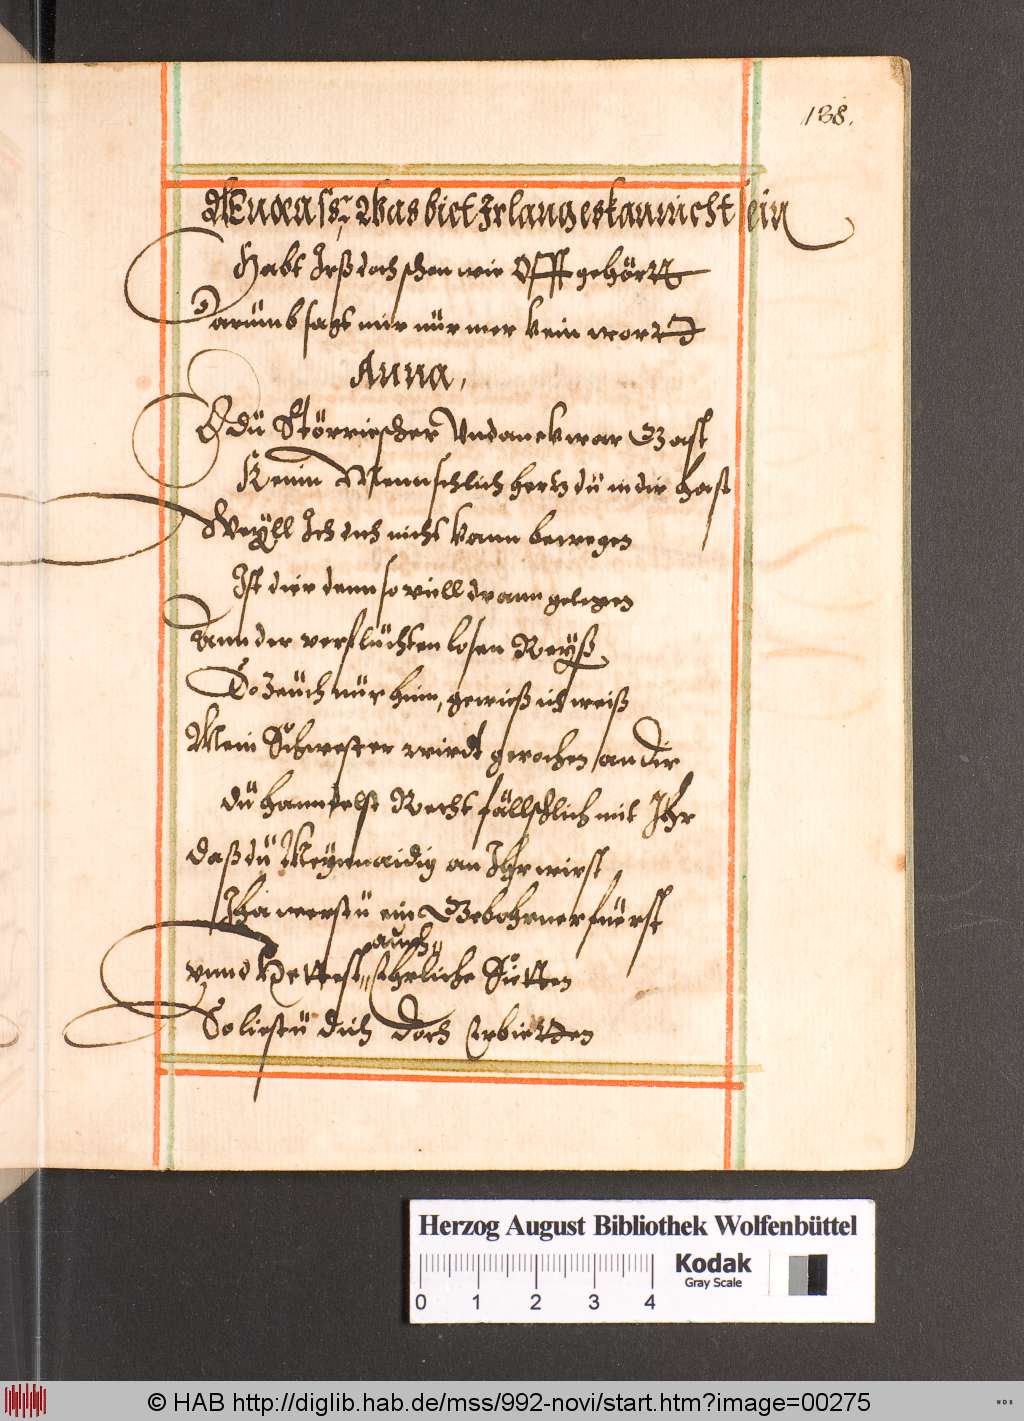 138.
AEneass, Was biet Ir lang es kan nicht sein
Habt Irß doch schon wie Offt gehörtt
Darümb sagt mir nür mer kein wortt
Anna,
O dü Störrischer Vndanckwar Gast
Keinn Mennschlich hertz dü in dir hast
Weyll Ich dich nicht kann bewegen
Ist dier denn so viell drann gelegen
Ann der verflüchten losen Reyß
So zeüch nür hinn, gewieß ich weiß
Mein Schwester wirdt gerochen an dir
dü hanndelst Recht fällschlich mit Ihr
daß dü Meynnaidig an Ihr wirst
Iha werstü ein Gebohrner fürst
auch
vnnd Hettest Ehrliche Sütten
So liestü dich doch Erbietten
Herzog August Bibliothek Wolfenbüttel
Kodak
Gray Scale
0 1 2 3 4
© HAB http://diglib.hab.de/mss/992-novi/start.htm?image=00275